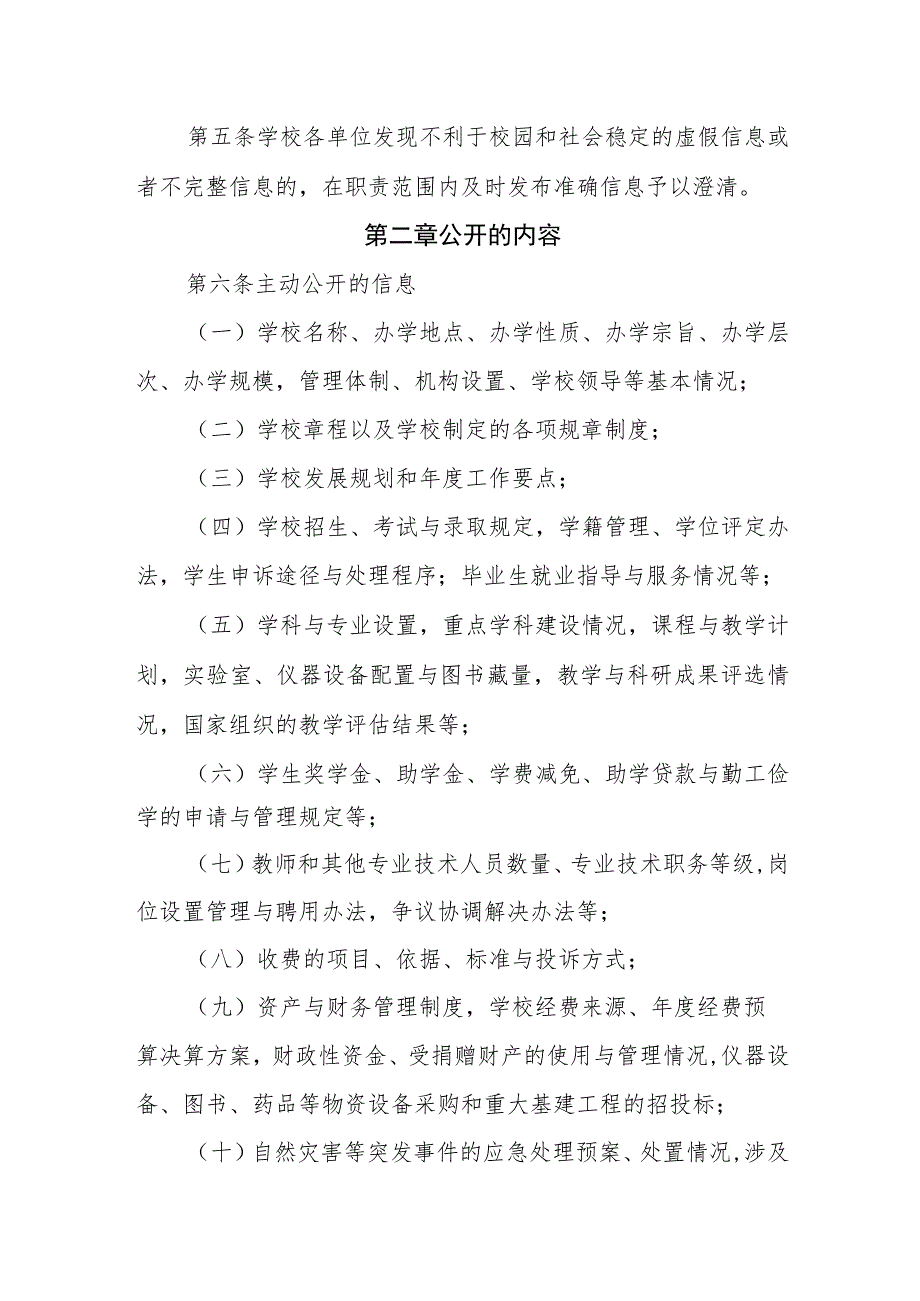 第五条学校各单位发现不利于校园和社会稳定的虚假信息或
者不完整信息的，在职责范围内及时发布准确信息予以澄清。
第二章公开的内容
第六条主动公开的信息
（一）学校名称、办学地点、办学性质、办学宗旨、办学层
次、办学规模，管理体制、机构设置、学校领导等基本情况；
（二）学校章程以及学校制定的各项规章制度；
（三）学校发展规划和年度工作要点；
（四）学校招生、考试与录取规定，学籍管理、学位评定办
法，学生申诉途径与处理程序；毕业生就业指导与服务情况等；
（五）学科与专业设置，重点学科建设情况，课程与教学计
划，实验室、仪器设备配置与图书藏量，教学与科研成果评选情
况，国家组织的教学评估结果等；
（六）学生奖学金、助学金、学费减免、助学贷款与勤工俭
学的申请与管理规定等；
（七）教师和其他专业技术人员数量、专业技术职务等级,岗
位设置管理与聘用办法，争议协调解决办法等；
（八）收费的项目、依据、标准与投诉方式；
（九）资产与财务管理制度，学校经费来源、年度经费预
算决算方案，财政性资金、受捐赠财产的使用与管理情况,仪器设
备、图书、药品等物资设备采购和重大基建工程的招投标；
（十）自然灾害等突发事件的应急处理预案、处置情况,涉及